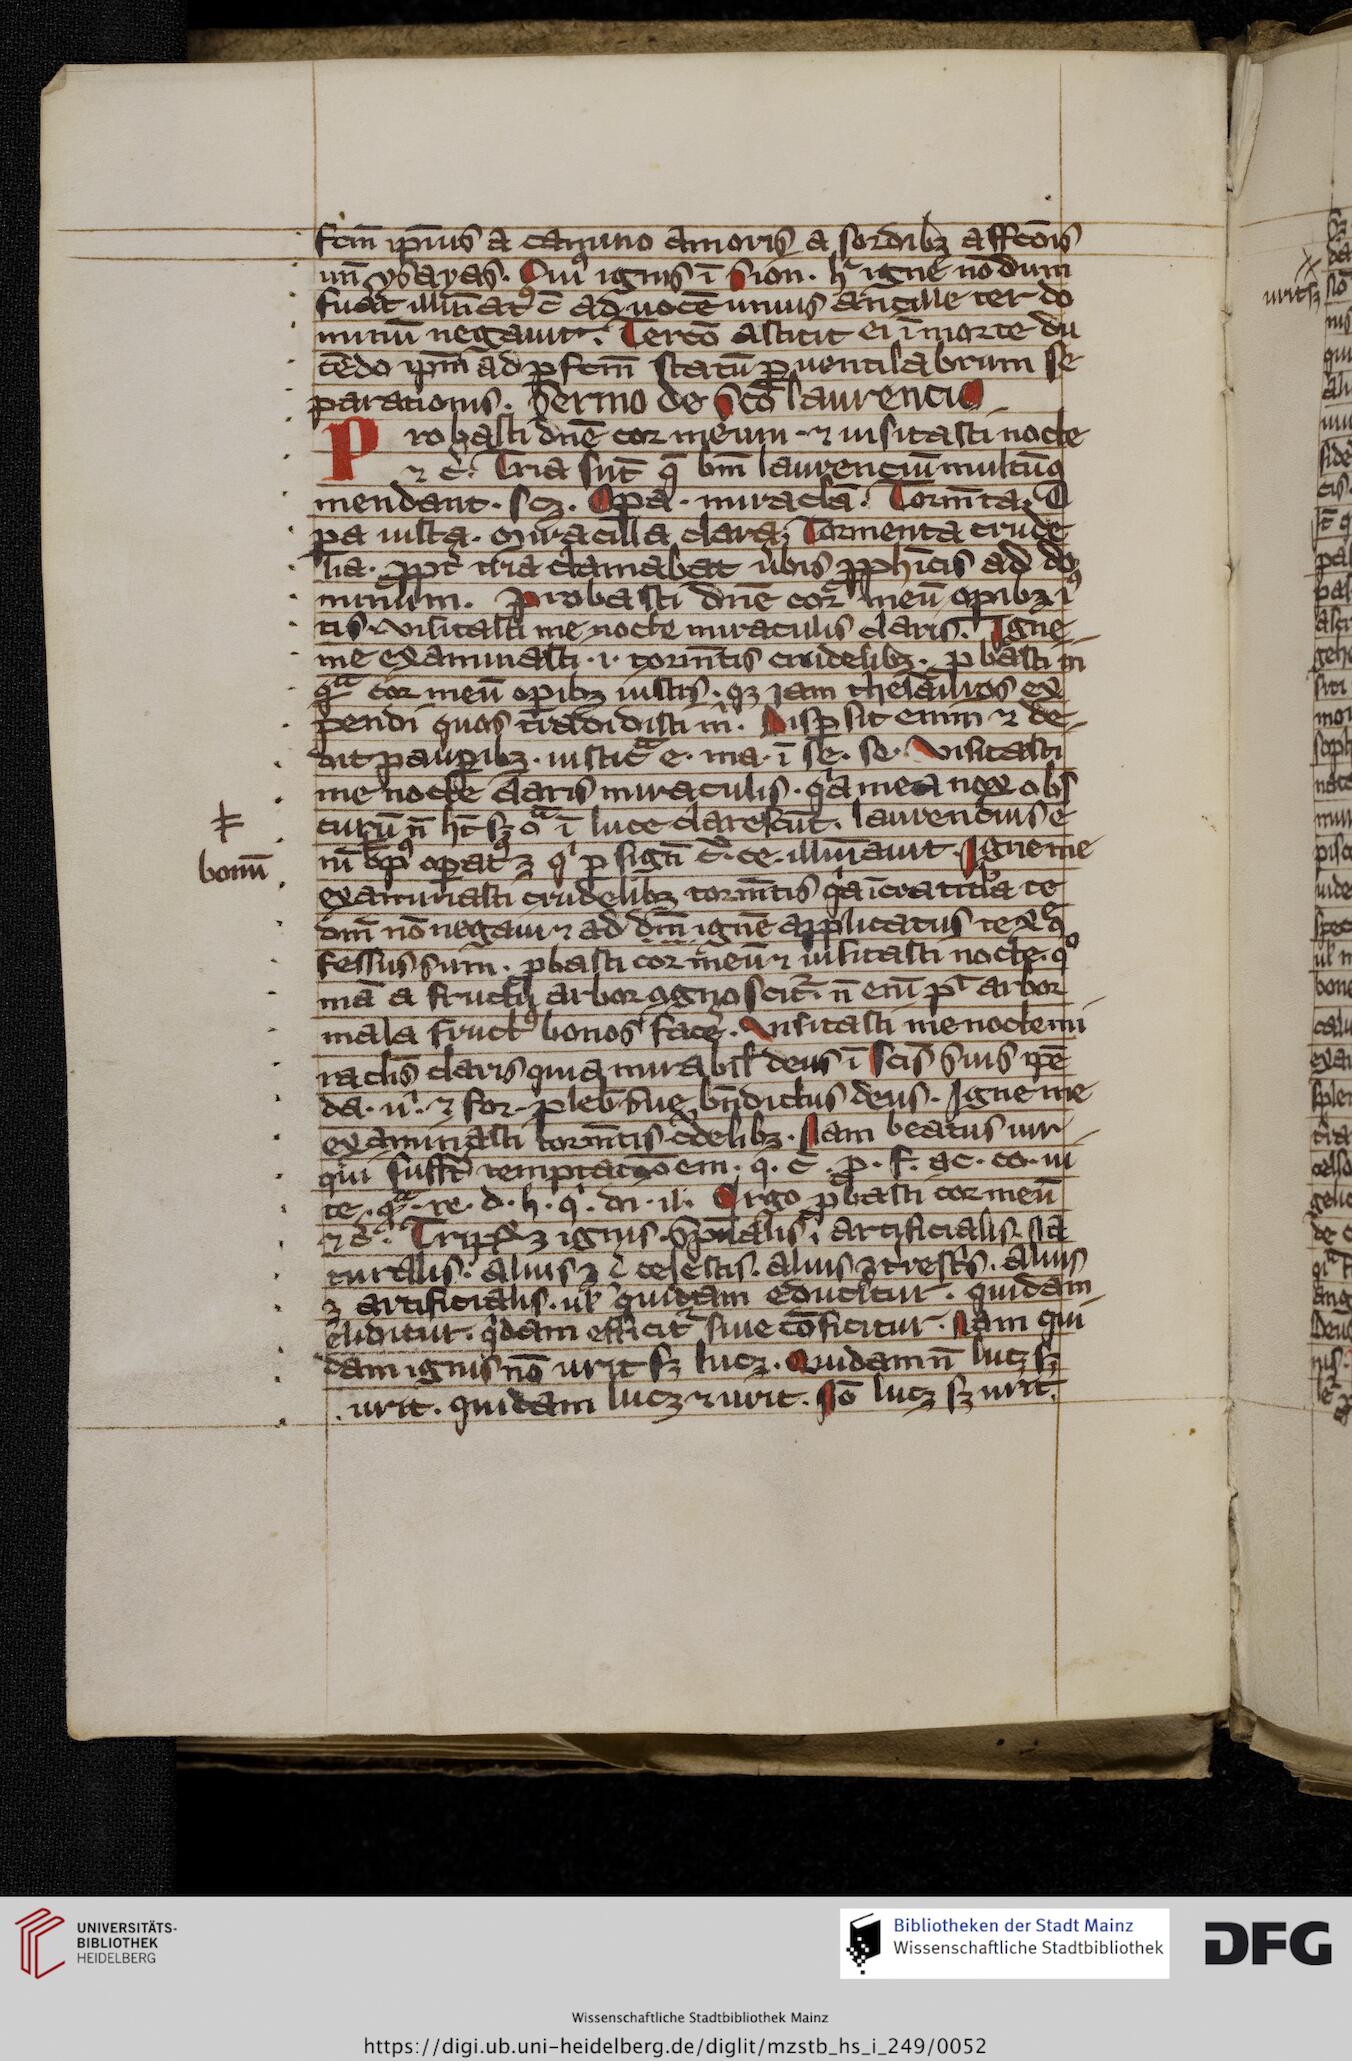 fcm̄ ip̄ius a camino amoris a sordibꝫ affcōis
un̄ ysayas. Cuiꝰ ignis ī sion. h̾ igne nōdum
fuāt illūnatꝰ c̄ ad uocē unius ancille ter do
minū negauit. Tercō astitit ei ī morte du
cēdo ip̄m ad ꝑfcm̄ statū ꝑ uentilabrum se
parationis. Sermo de Scō laurencio
Probasti dn̄e cor meum ⁊ uisitasti nocte
⁊ c̄. Tria sūt q̄ bm̄ laurenciū multū ꝯ
mendant. scꝫ. Opa. miracl̄a. Tormēta. O
pa iusta. Miracula clara. Tormenta crude
lia. ꝓpt̾ tria clamabat ūbis ꝓph̄icis ad do
minum. Probasti dn̄e cor meū opibꝫ iꝰ
tis. visitasti me nocte miraculis claris. Igne
me examinasti .i. tormētis crudelibꝫ. ꝓbasti in
qͣ cor meū opibꝫ iustis. qꝫ iam thesauros ex
pendi quos tradidisti m̄. Disꝑsit enim ⁊ de
dit pauꝑibꝫ. iusticͣ e. ma. ī se. se. Visitasti
me nocte claris miraculis. qͥa mea nox obs
curū n̄ ht̄ sꝫ oͣ ī luce clarescūt. laurencius e
nī opꝰ opatꝰ ꝫ qͥ ꝑ signū c̾. ce. illūinauit. Igne me
bonū
examinasti crudelibꝫ tormētis qͥa īcraticl̾a te
dm̄ nō negaui ⁊ ad dm̄ ignē applicatus te xꝑm
fessus sum. ꝓbasti cor meū ⁊ uisitasti nocte. qͦ
mā a fructu arbor ꝯgnoscit̾. n̄ enī pͭ arbor
mala fructꝰ bonos face̾. Visitasti me nocte mi
raclis̄ claris quia mirabil̾ deus ī scīs suis ip̄e
da. u̾. ⁊ for. pleb̄ sue bn̄dictus deus. Igne me
examinasti tormētis c̾delibꝫ. Nam beatus uir
qui suffr̄t temptacōem. q. c̄. ꝓ. f. ac. co. ui
te. qͣ. re. d. h. qͥ. di. il. Ergo ꝓbasti cor meū
⁊ c̾. Triplex ꝫ ignis. Sp̄ualis. artificialis. Na
turalis. alius ꝫ celestis. alius ꝫ trest̾s. alius
ꝫ artificialis. ul̾ quidam educitur. quidam
eliditur. qͥdam efficit̾ siue cōficitur. Nam qui
dam ignis nō urit sꝫ lucꝫ. Quidam n̄ lucꝫ sꝫ
urit. quidam lucꝫ ⁊ urit. Nō lucꝫ sꝫ urit.
UNIVERSITÄTS-
BIBLIOTHEK
HEIDELBERG
Bibliotheken der Stadt Mainz
Wissenschaftliche Stadtbibliothek
DFG
Wissenschaftliche Stadtbibliothek Mainz
https://digi.ub.uni-heidelberg.de/diglit/mzstb_hs_i_249/0052